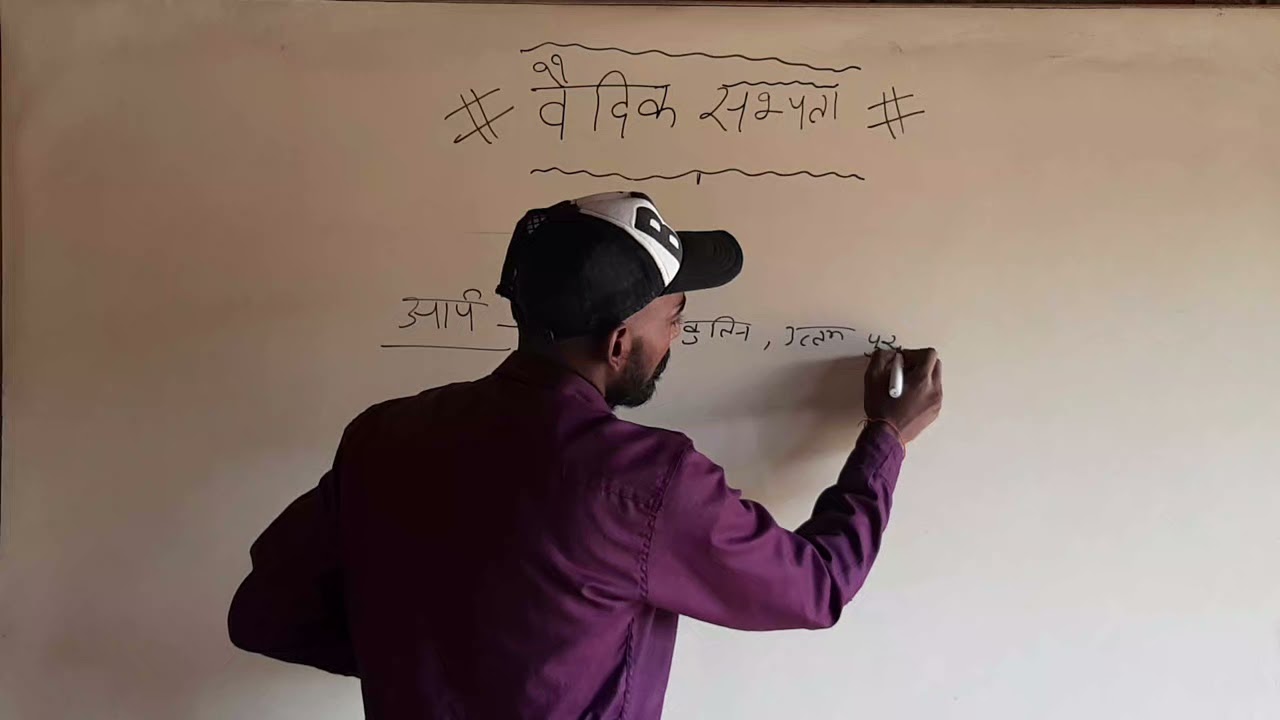 # वैदिक सभ्यता #
आर्य - कुलिन, उत्तम पुरु
B